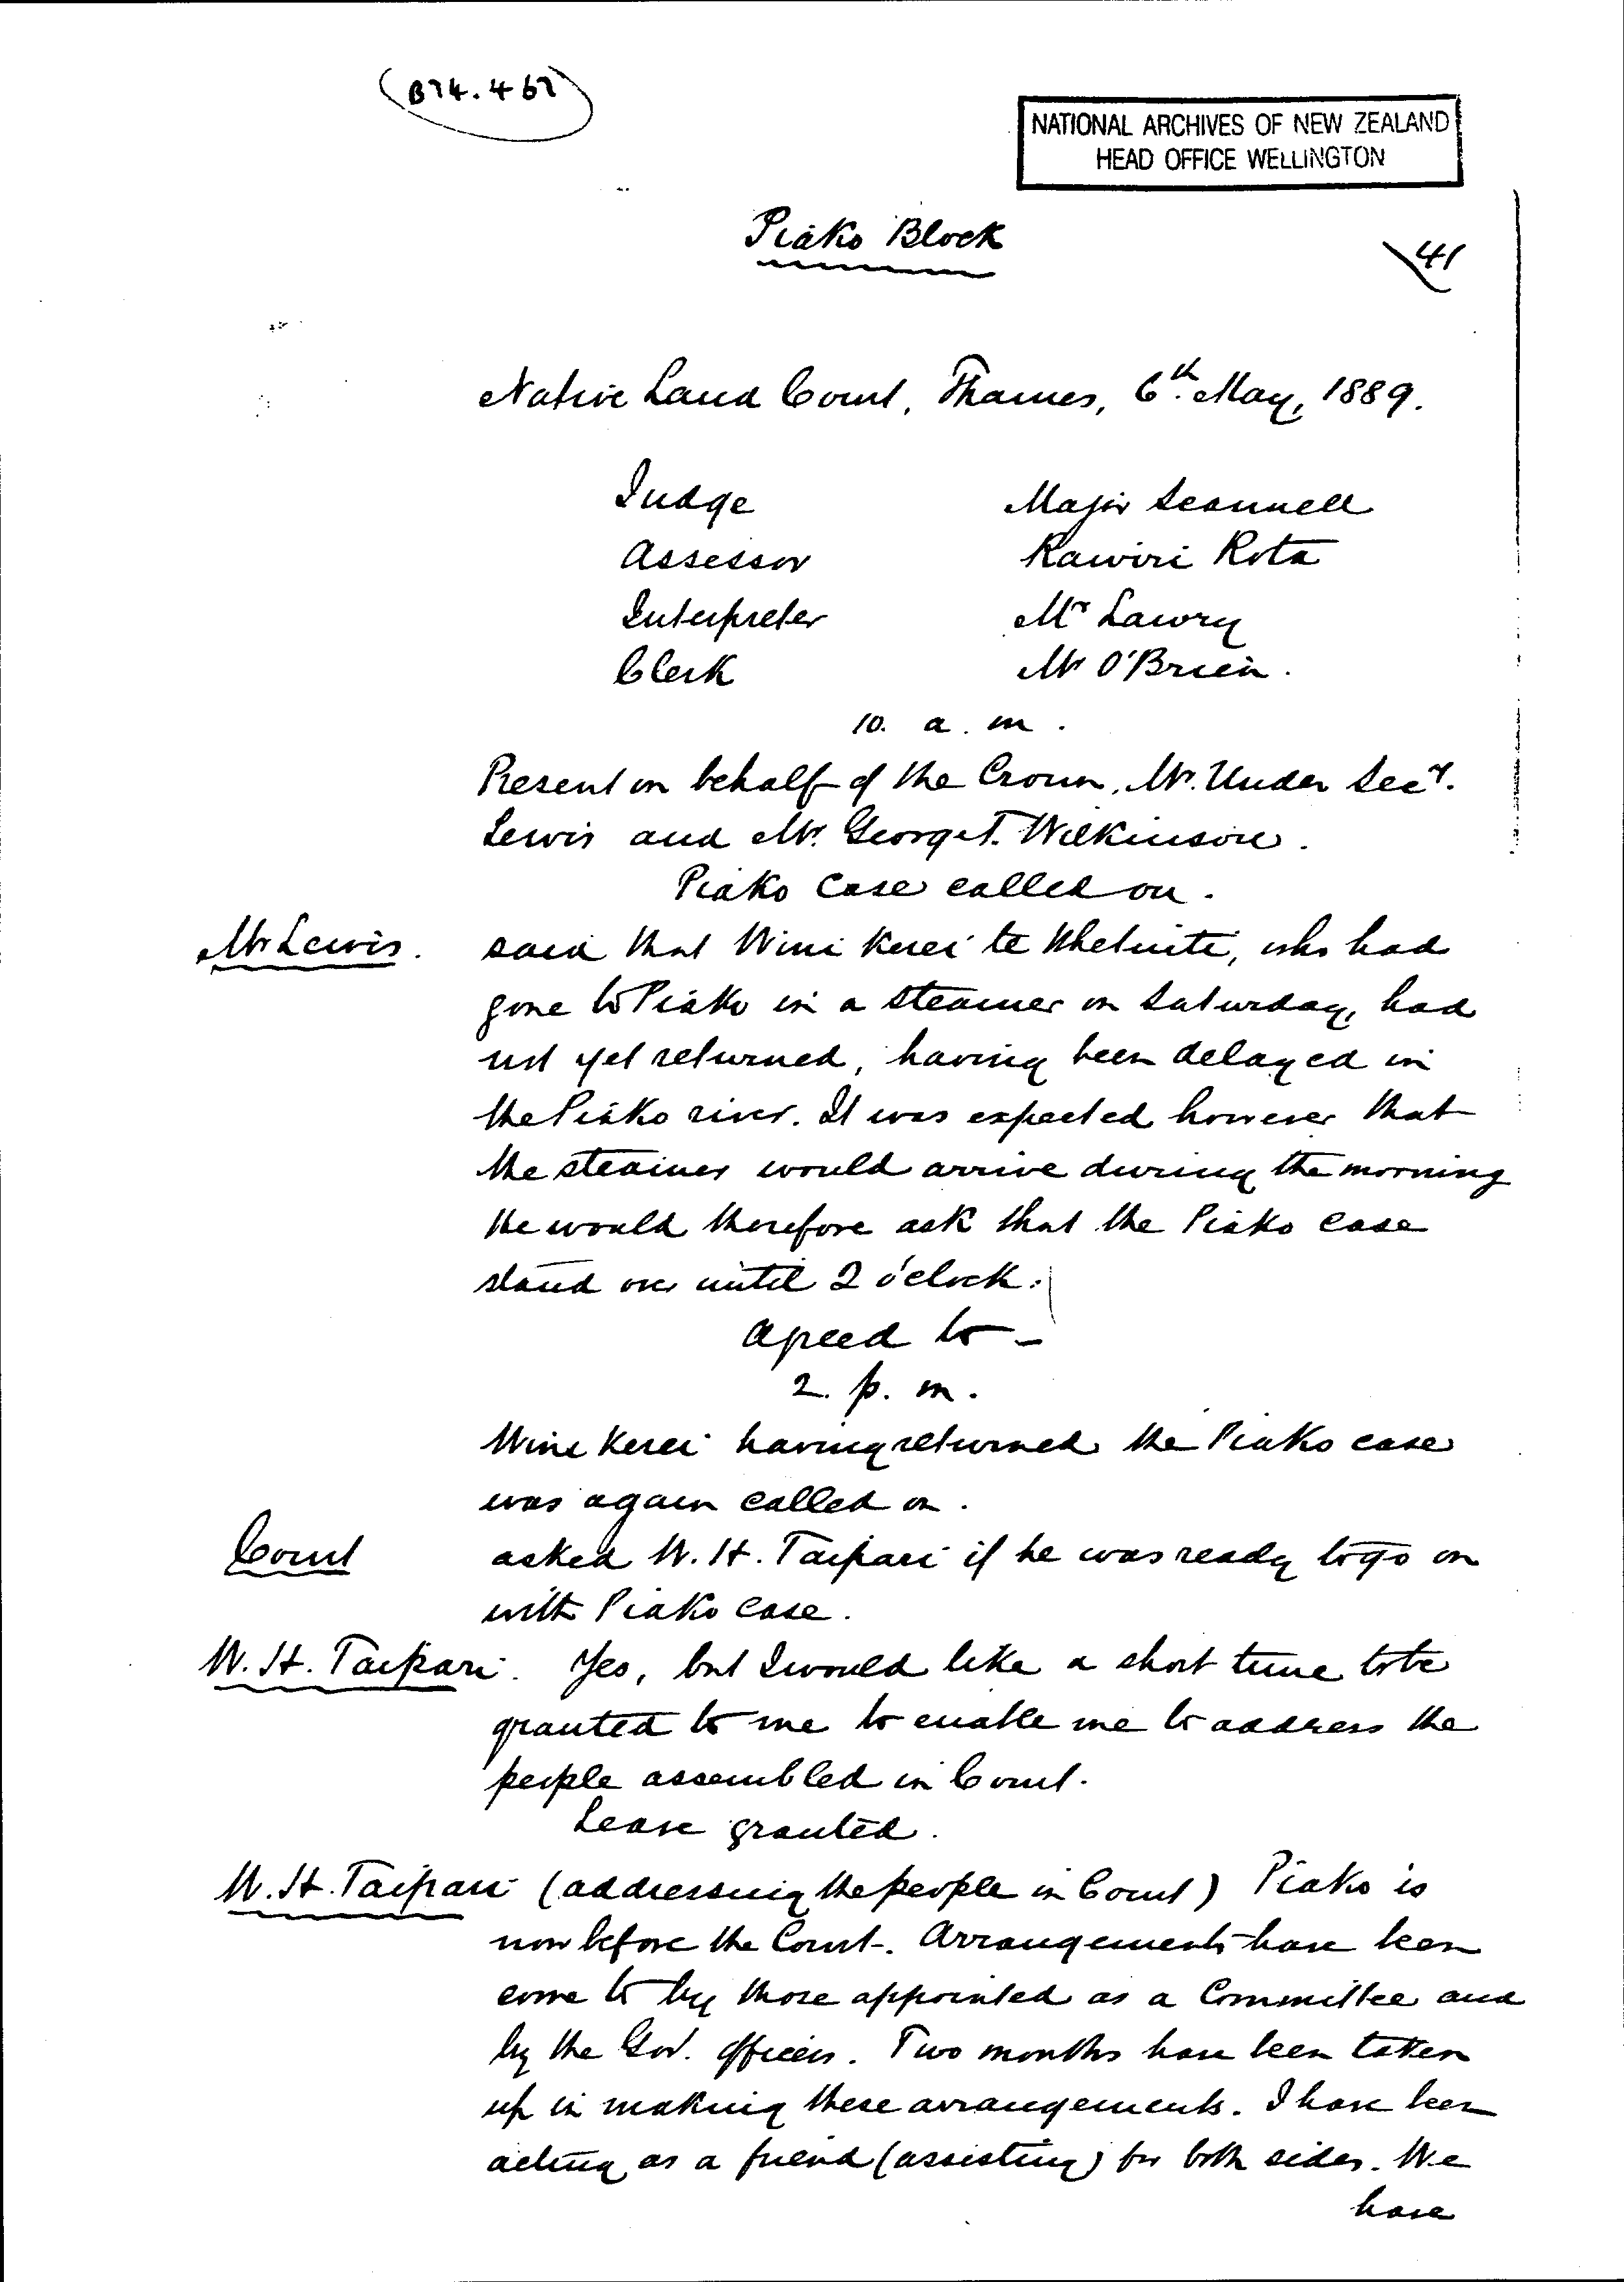 (B74.467)
NATIONAL ARCHIVES OF NEW ZEALAND
HEAD OFFICE WELLINGTON
Piako Block
41
Native Land Court, Thames, 6th. May, 1889.
Judge Major Scannell
Assessor Rawiri Rota
Interpreter Mr Lawry
Clerk Mr O'Brien.
10. a.m.
Present on behalf of the Crown, Mr. Under Secy.
Lewis and Mr. George T. Wilkinson.
Piako Case called on.
Mr Lewis. said that Wini Kerei te Whetuiti, who had
gone to Piako in a steamer on Saturday, had
not yet returned, having been delayed in
the Piako river. It was expected however that
the steamer would arrive during the morning
He would therefore ask that the Piako case
stand over until 2 o'clock.
Agreed to –
2. p.m.
Wini Kerei having returned the Piako case
was again called on.
Court asked W. H. Taipari if he was ready to go on
with Piako Case.
W. H. Taipari. Yes, but I would like a short time to be
granted to me to enable me to address the
people assembled in Court.
Leave granted.
W. H. Taipari (addressing the people in Court) Piako is
now before the Court. Arrangements have been
come to by those appointed as a Committee and
by the Gov. officers. Two months have been taken
up in making these arrangements. I have been
acting as a friend (assisting) for both sides. We
have